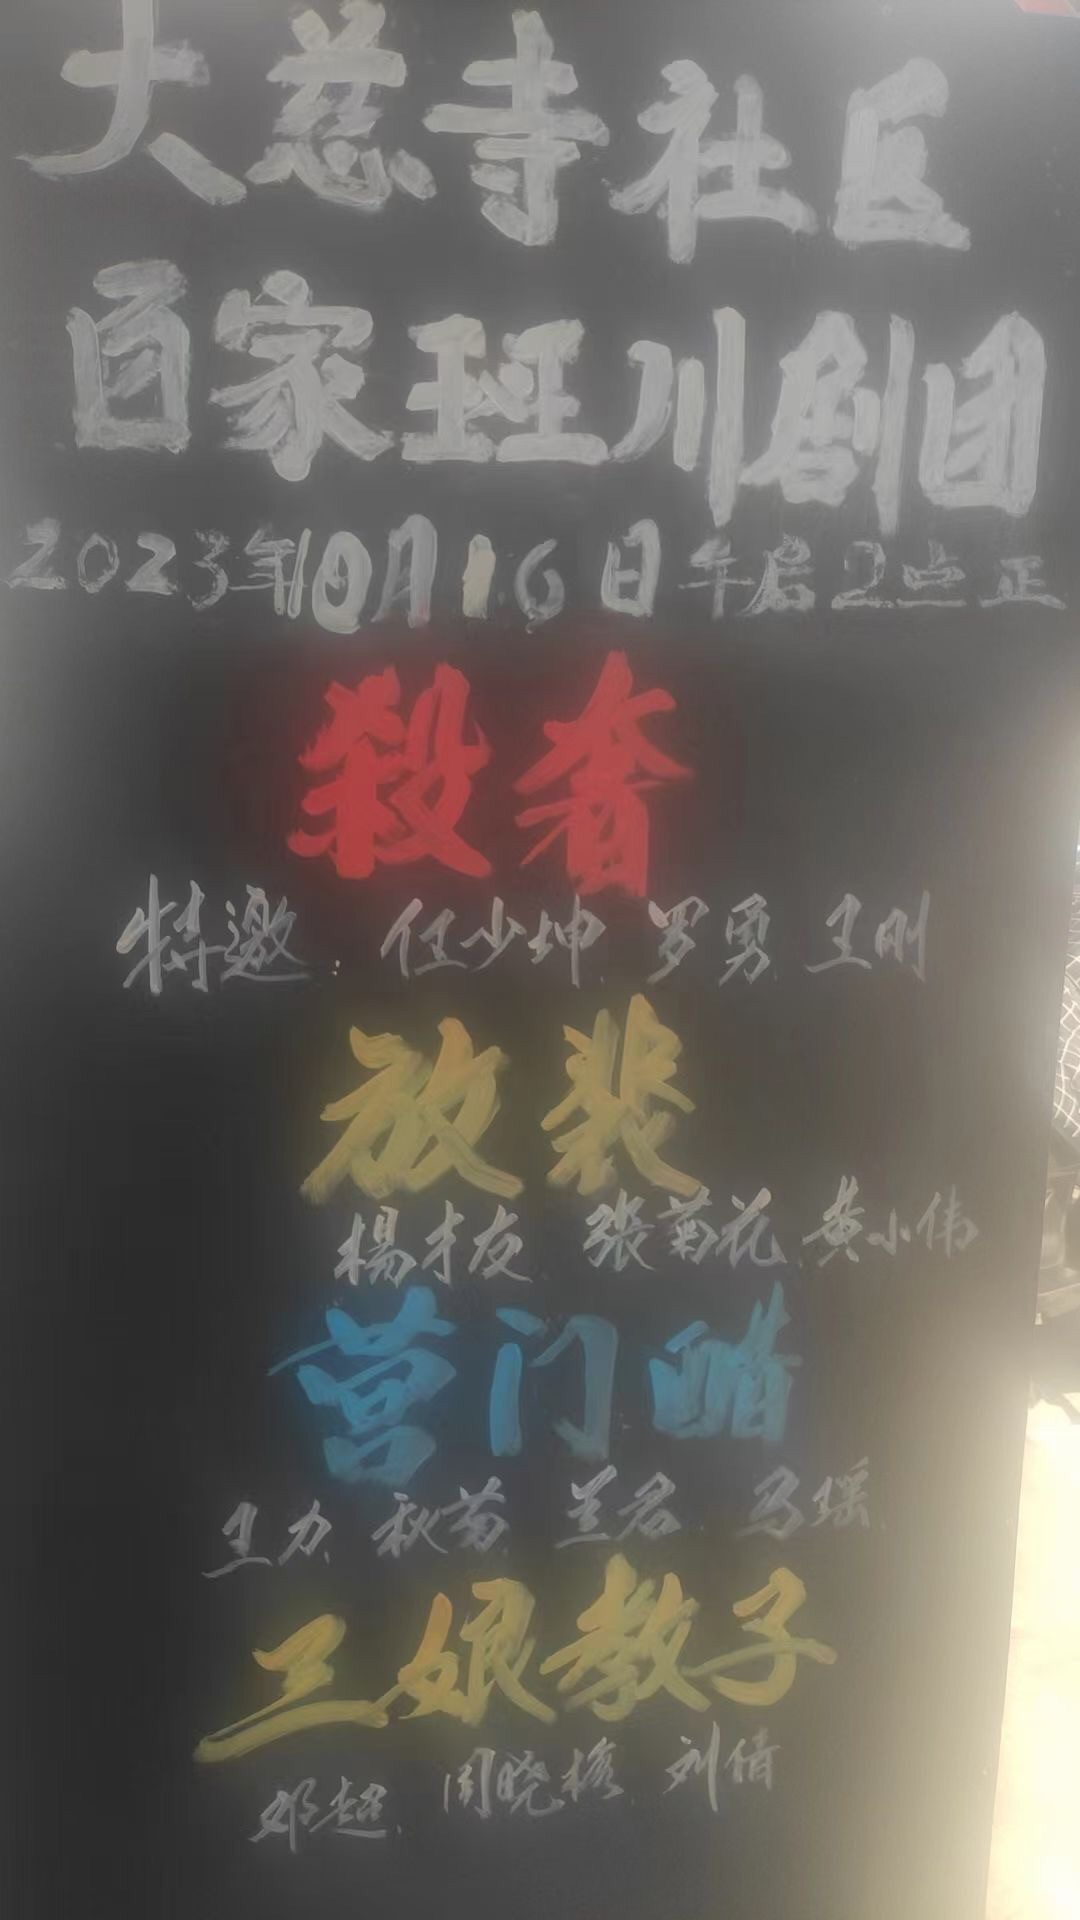 大慈寺社区
百家班川剧团
2023年10月16日午后2点正
殺奢
特邀：任少坤 罗勇 王刚
放裴
楊才友 张菊花 黄小伟
营门
王力 秋菊 兰君 马瑶
三娘教子
邓超 周晓 刘倩